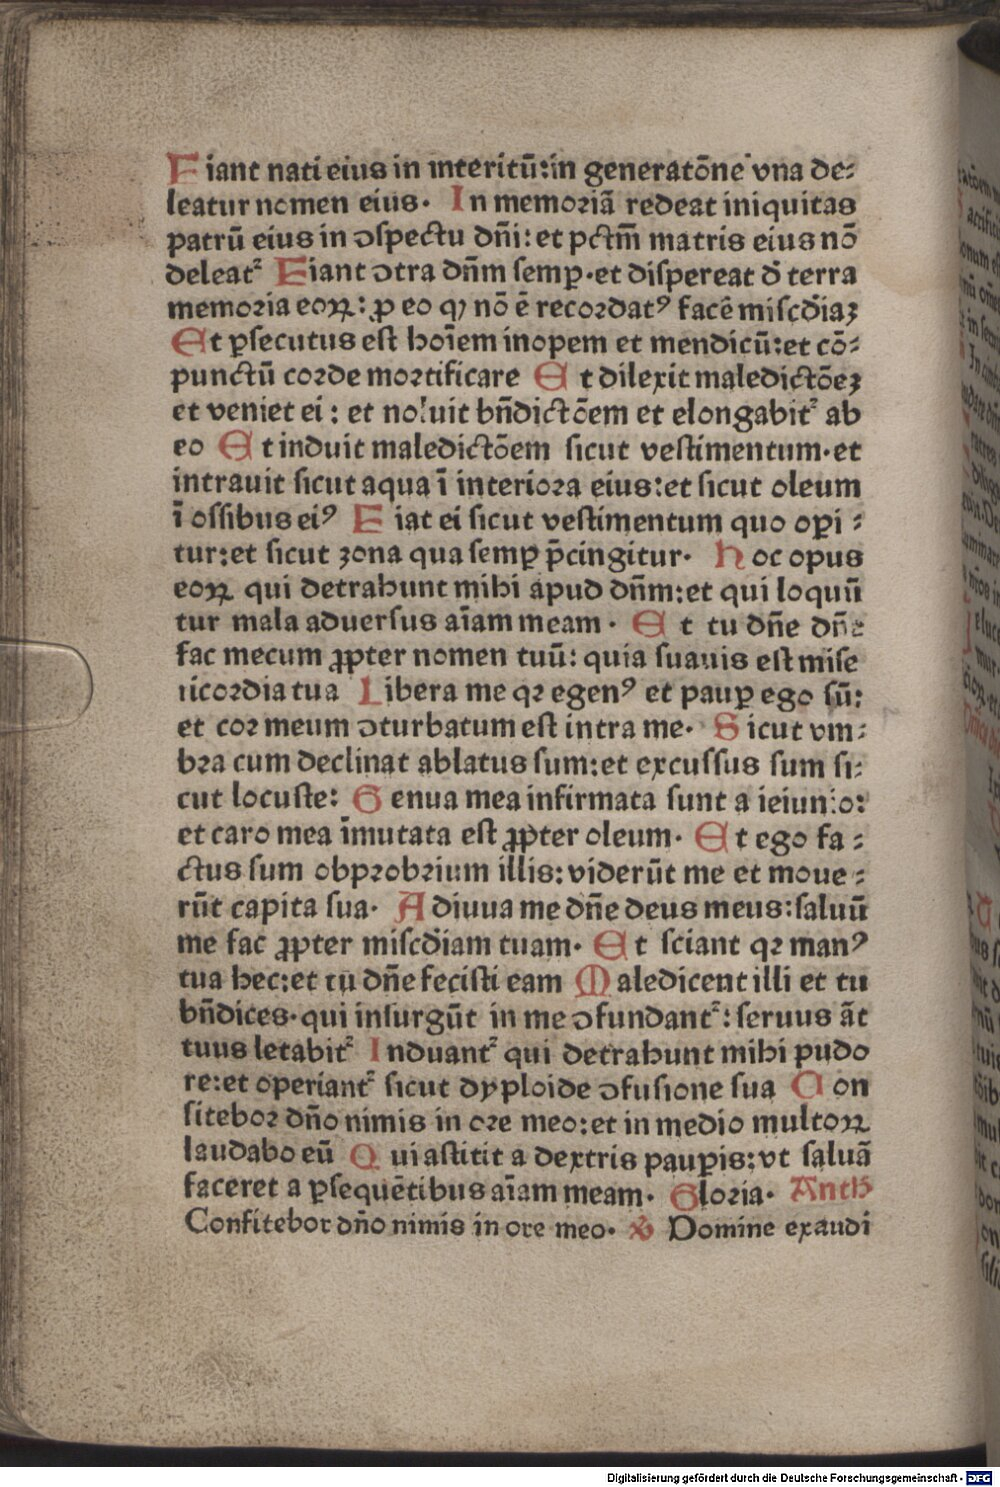 Fiant nati eius in interitū: in generatōne vna de-
leatur nomen eius. In memoriā redeat iniquitas
patrū eius in ↄspectu dn̄i: et pctm̄ matris eius nō
deleatᷣ Fiant ↄtra dn̄m semꝑ. et dispereat d̄ terra
memoria eoꝝ: ꝓ eo ꝙ nō ē recordatꝰ facē miscd̄iaꝫ
Et ꝑsecutus est hoīem inopem et mendicū: et cō-
punctū corde mortificare Et dilexit maledictōeꝫ
et veniet ei: et noluit bn̄dictōem et elongabitᷣ ab
eo Et induit maledictōem sicut vestimentum. et
intrauit sicut aqua ī interiora eius: et sicut oleum
ī ossibus eiꝰ Fiat ei sicut vestimentum quo oꝑi-
tur: et sicut zona qua semꝑ p̄cingitur. Hoc opus
eoꝝ qui detrahunt mihi apud dn̄m: et qui loquū
tur mala aduersus aīam meam. Et tu dn̄e dn̄e
fac mecum ꝓpter nomen tuū: quia suauis est mise
ricordia tua Libera me qꝛ egenꝰ et pauꝑ ego sū:
et cor meum ↄturbatum est intra me. Sicut vm-
bra cum declinat ablatus sum: et excussus sum si-
cut locuste: Genua mea infirmata sunt a ieiunio:
et caro mea īmutata est ꝓpter oleum. Et ego fa-
ctus sum obprobrium illis: viderūt me et moue-
rūt capita sua. Adiuua me dn̄e deus meus: saluū
me fac ꝓpter miscd̄iam tuam. Et sciant qꝛ manꝰ
tua hec: et tu dn̄e fecisti eam Maledicent illi et tu
bn̄dices. qui insurgūt in me ↄfundantᷣ: seruus āt
tuus letabitᷣ Induantᷣ qui detrahunt mihi pudo
re: et operiantᷣ sicut dyploide ↄfusione sua Con
fitebor dn̄o nimis in ore meo: et in medio multoꝝ
laudabo eū Qui astitit a dextris pauꝑis: vt saluā
faceret a ꝑsequētibus aīam meam. Gloria. Anth
Confitebor dn̄o nimis in ore meo. ℣ Domine exaudi
Digitalisierung gefördert durch die Deutsche Forschungsgemeinschaft - DFG